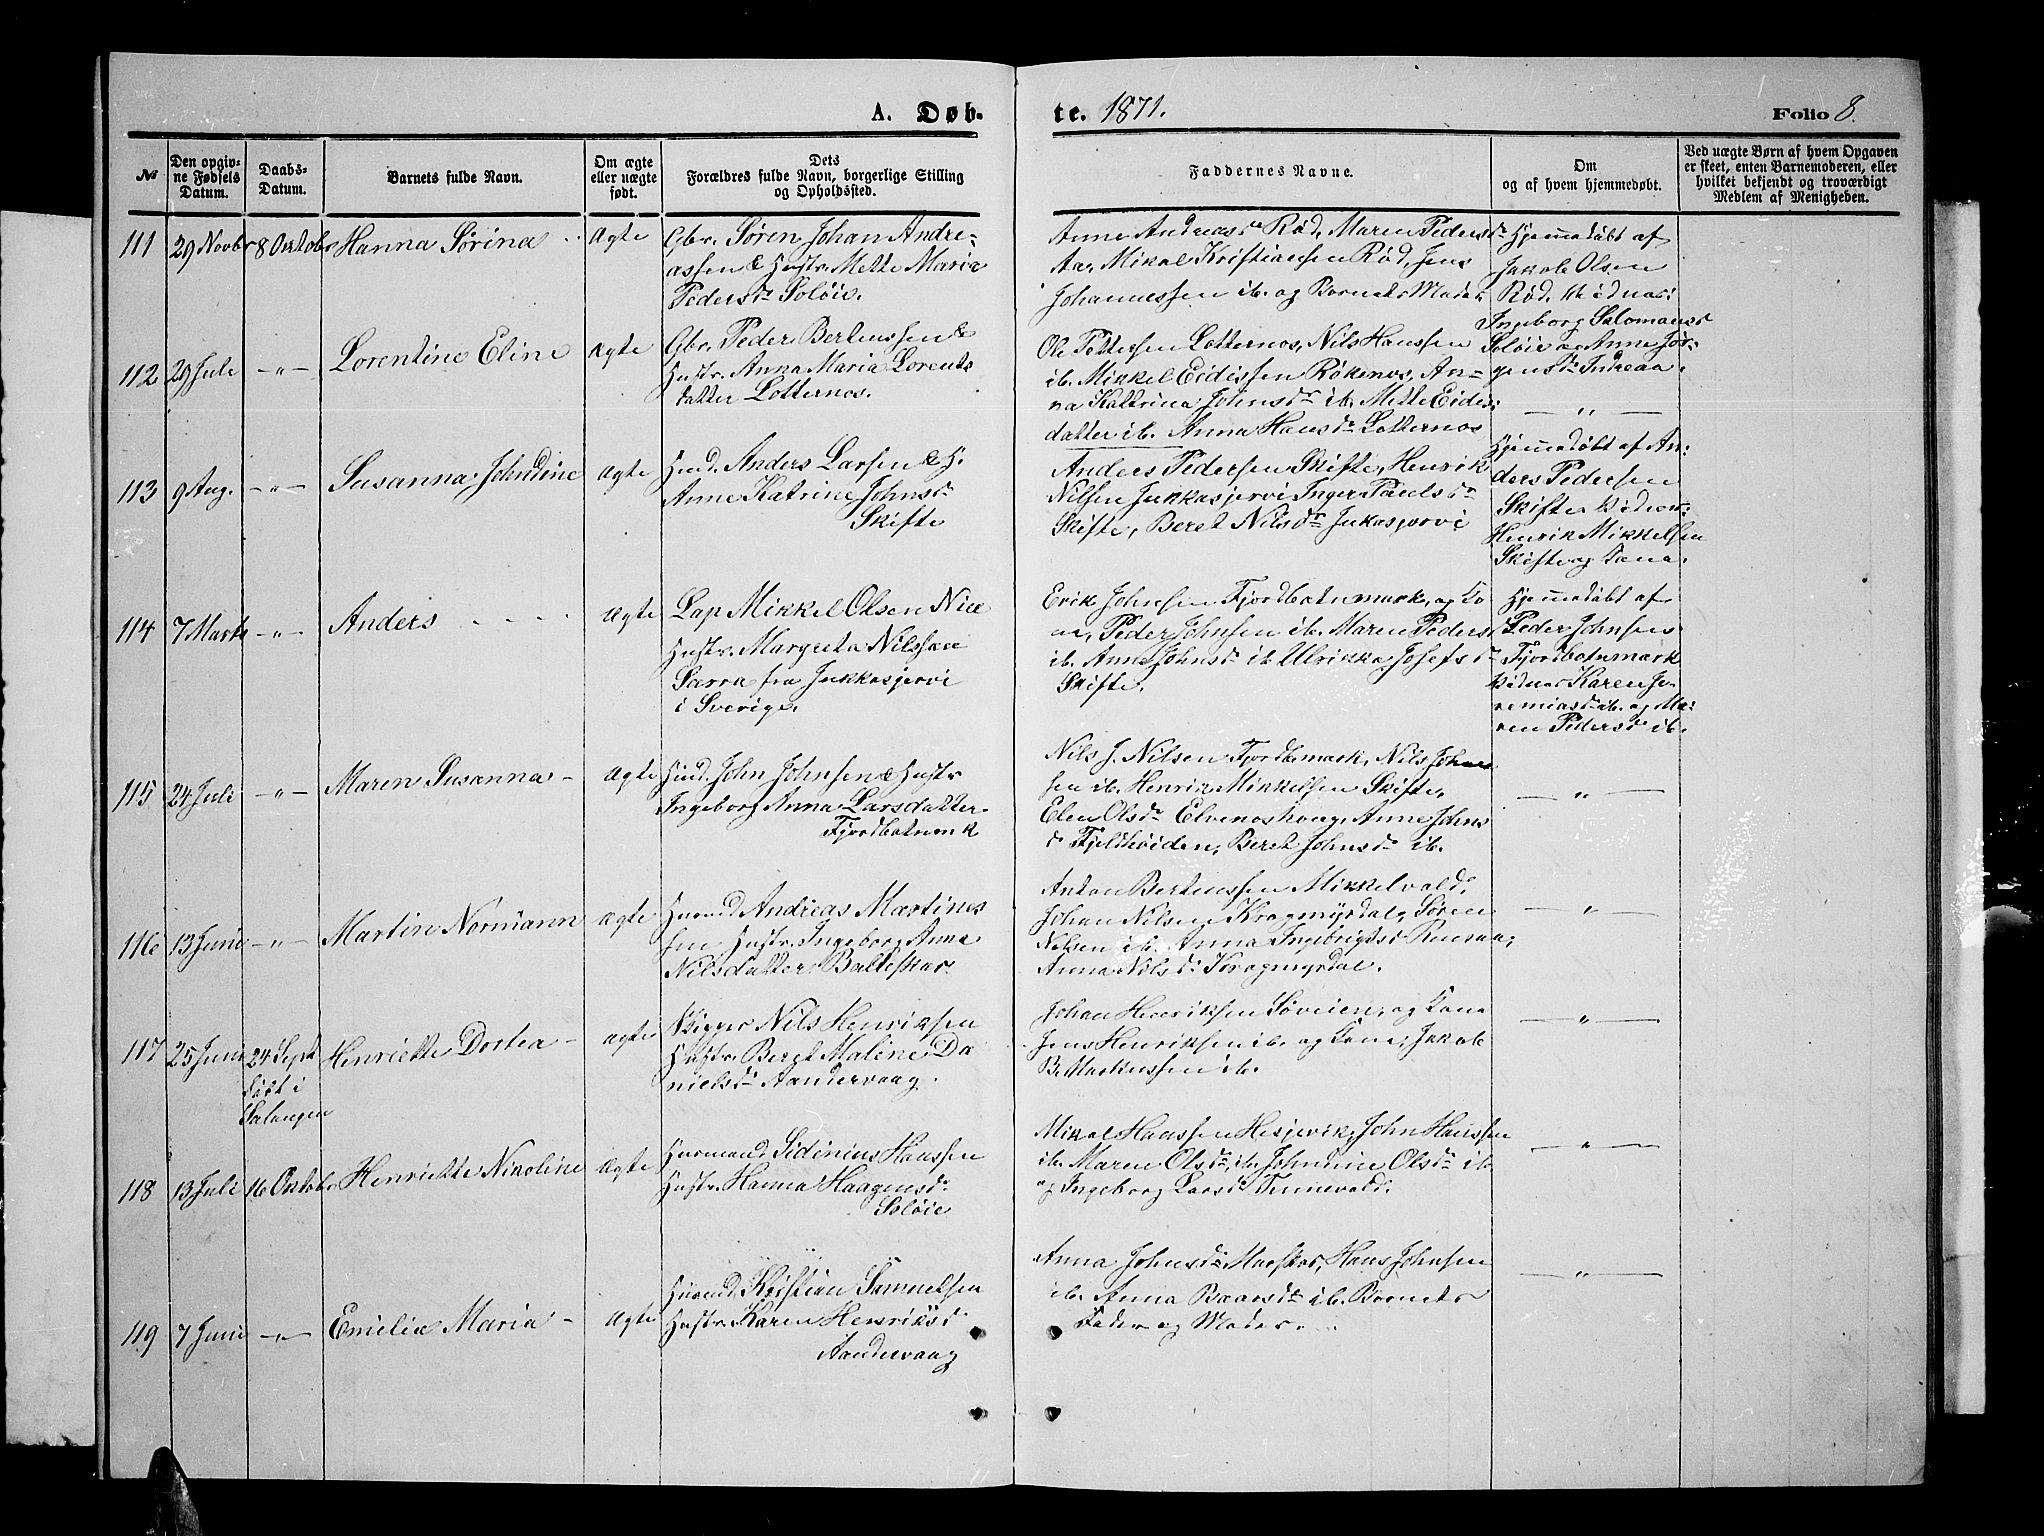 A. Døb-
te. 1871.
Folio 8.
№
Den opgiv-
ne Fødsels
Datum.
Daabs-
Datum.
Barnets fulde Navn.
Om ægte
eller uægte
født.
Dets
Forældres fulde Navn, borgerlige Stilling
og Opholdssted.
Faddernes Navne.
Om
og af hvem hjemmedøbt.
Ved uægte Børn af hvem Opgaven
er skeet, enten Barnemoderen, eller
hvilket bekjendt og troværdigt
Medlem af Menigheden.
111
29 Novbr
8 Oktobr
Hanna Sørina
Ægte
Gbr. Søren Johan Andre-
assen & Hustr. Mette Maria
Pedersdr Soløie.
Anne Andreasdr Rød, Maren Pedersdr
Aa, Mikal Kristiansen Rød, Jens
Johannessen ib. og Barnets Moder
Hjemmedøbt af
Jakob Olsen
Rød.
Ingeborg Salomonsd
Soløie og Anne Jør-
gensdr
112
29 Juli
-"-
Lorentine Eline
Ægte
Gbr. Peder Bertenssen &
Hustr. Anna Maria Lorents
datter Lotternos.
Ole Pettersen Lotternos, Nils Hanssen
ib. Mikkel Eidissen Røkenos, An-
na Kattrina Johnsdr ib. Mette Eidis-
datter ib. Anna Hansdr Lotternos
-"-
113
9 Aug.
-"-
Susanna Johndine
Ægte
Huud. Anders Larsen & H.
Anne Katrine Johnsdr
Skifte
Anders Pedersen Skifte, Henrik
Nilsen Jukkasjervi Inger Paulsdr
Skifte, Beret Nilsdr Jukasjervi
Hjemmedøbt af An-
ders Pedersen
Skifte
Henrik Mikkelsen
Skifte og Kona.
114
7 Marts
-"-
Anders
Ægte
Lap Mikkel Olsen Nia
Hustr. Margreta Nilsdatter
Sarra fra Jukkasjervi
i Sverige.
Erik Johnsen Fjordbotnmark, og Ko
na, Peder Johnsen ib. Maren Pedersd
ib. Anne Johnsdr ib. Ulrikka Josefsdr
Skifte.
Hjemmedøbt af
Peder Johnsen
Fjordbotnmark
Karen Je-
remiasdr ib. og Ma-
ren Pedersdr ib.
115
24 Juli
-"-
Maren Susanna
Ægte
Huud. John Johnsen & Hustr
Ingeborg Anna Larsdatter
Fjordbotnmk
Nils J. Nilsen Fjordbmark, Nils Johan
sen ib. Henrik Mikkelsen Skifte,
Elen Olsdr Elvenoshoug, Anne Johns
dr Fjeldhøiden, Beret Johnsdr ib.
-"-
116
13 Juni
-"-
Martin Normann
Ægte
Huusmd Andreas Martines
sen Hustr. Ingeborg Anna
Nilsdatter, Balteskar
Anton Bertenssen Mikkelvold,
Johan Nilsen Kragmyrdal, Søren
Nilsen ib. Anna Ingebrigtsd
Anna Nilsdr Kragmyrdal.
-"-
117
25 Juni
24 Sept
døbt i
Salangen
Henriette Dortea
Ægte
Nils Henriksen
Hustr. Beret Maline Da
nielsdr Aandervaag.
Johan Henriksen Søveien, og Kona
Jens Henriksen ib. og Kona, Jakob
B. Markussen ib.
-"-
118
13 Juli
16 Oktobr
Henriette Nikoline
Ægte
Huusmand Sidinius Hanssen
Hustr. Hanna Haagensdr
Soløie
Mikal Hanssen Hesjevik, John Hanssen
ib. Maren Olsdr ib. Johndine Olsdr ib
og Ingeborg Larsdr Tennevold.
-"-
119
7 Juni
-"-
Emilie Maria
Ægte
Huusmd. Kristian Samuelsen
Hustr. Karen Henriksd
Aandervaag
Anna Johnsdr Maeskar, Hans Johnsen
ib. Anna Baarsdr ib. Barnets
Fader og Moder.
-"-